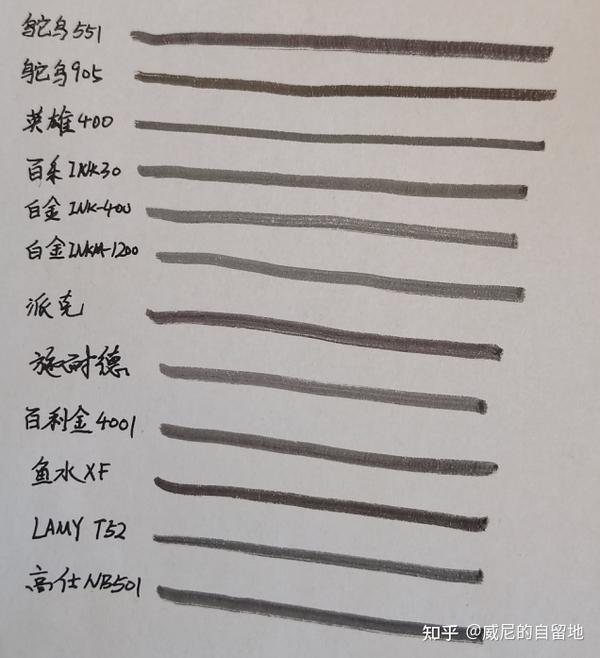 鸵鸟551
鸵鸟905
英雄400
百乐INK30
白金INK-400
白金INKM-1200
派克
施耐德
百利金4001
鱼水XF
LAMY T52
高仕NB501
知乎 @威尼的自留地